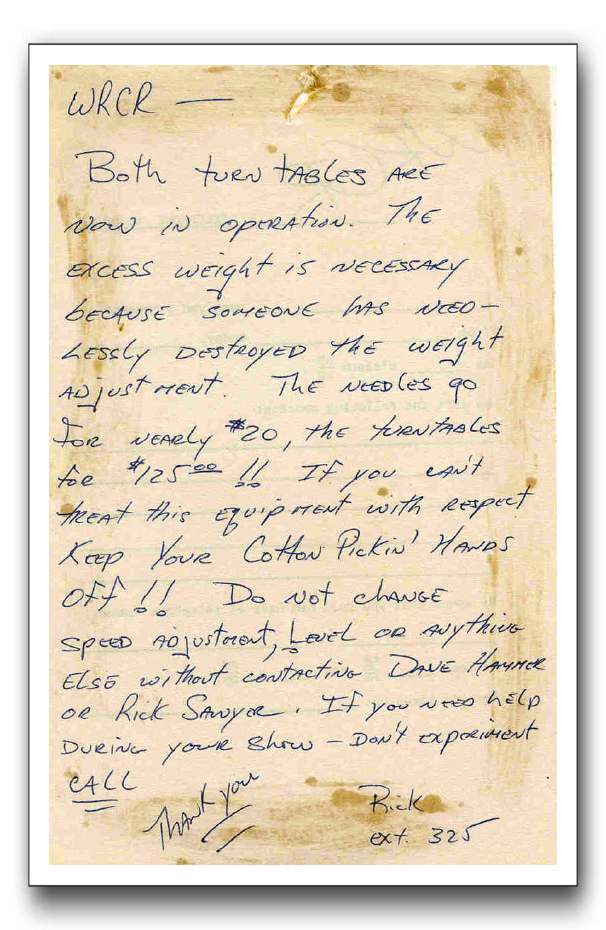 WRCR —
Both turntables are
now in operation. The
excess weight is necessary
because someone has need-
lessly destroyed the weight
adjustment. The needles go
for nearly $20, the turntables
for $125.00 !! If you can't
treat this equipment with respect
Keep Your Cotton Pickin' Hands
Off !! Do not change
speed adjustment, Level or anything
else without contacting Dave Hammer
or Rick Sawyer. If you need help
during your show – Don't experiment
CALL
Thank you
Rick
ext. 325